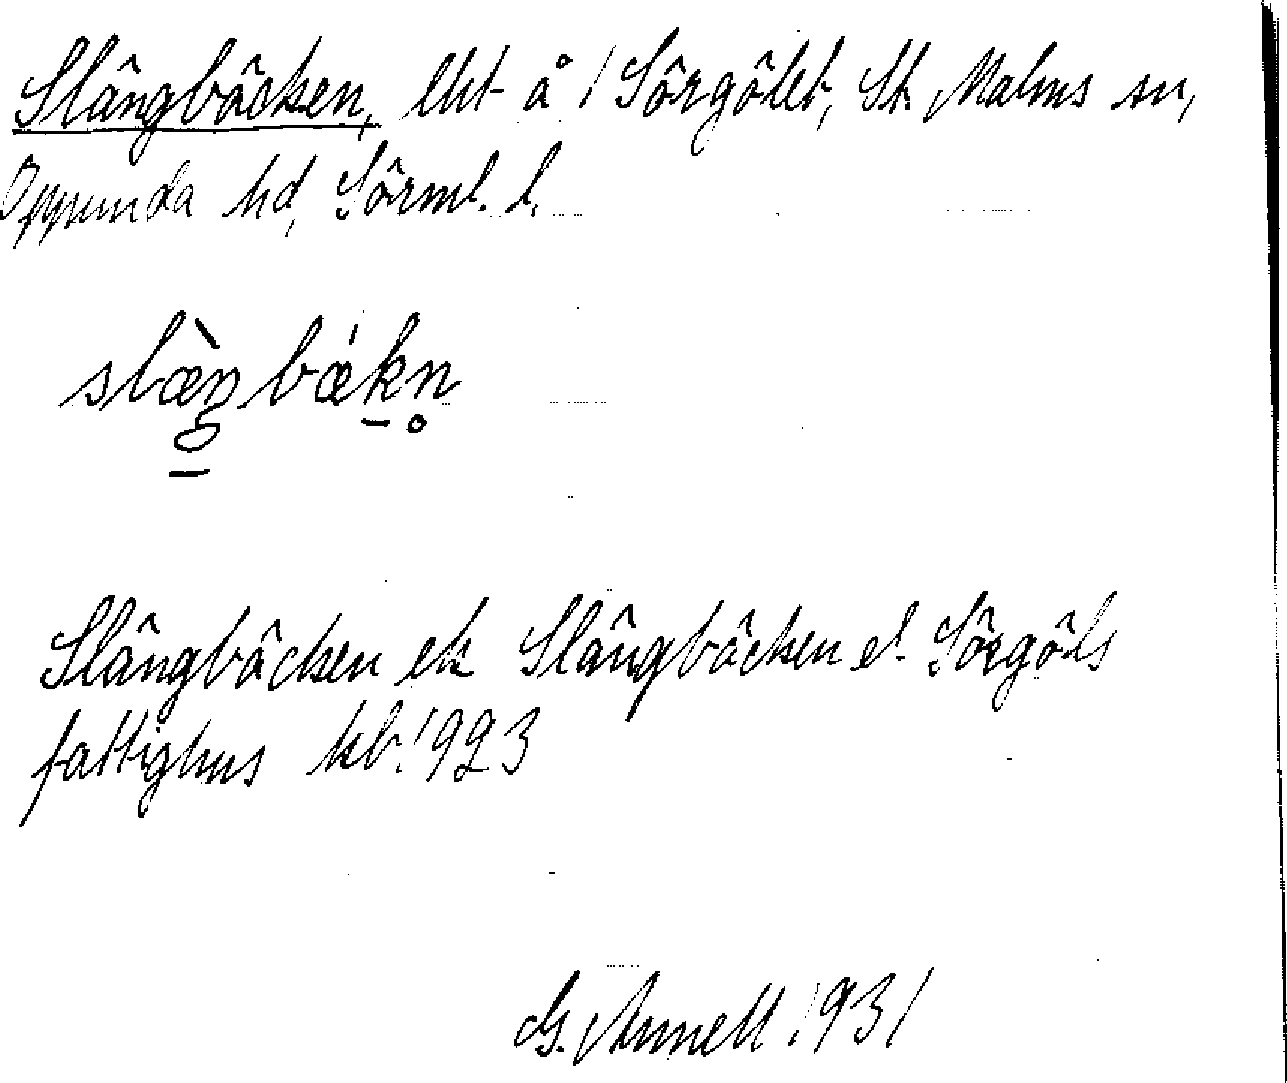 Slängbäcken, lht å 1 Sörgölet, St. Malms sn,
Oppunda hd, Sörml. l.
slæ̀ŋbǽkn̥
Slängbäcken ek Slängbäcken el. Sörgöls
fattighus kb. 1923
G. Annell 1931